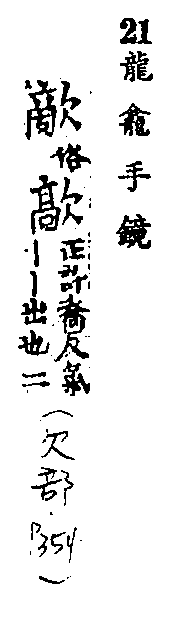 21龍龕手鏡
歒俗歊正許喬反氣丨丨出也二(欠部 P354)